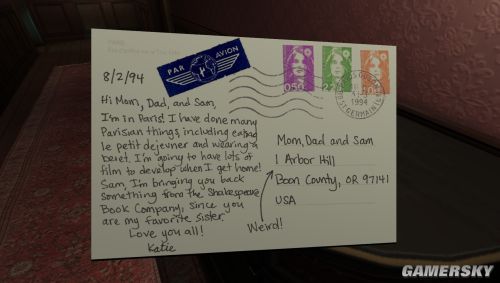 PARIS
PAR AVION
8/2/94
Hi Mom, Dad, and Sam,
I'm in Paris! I have done many
Parisian things, including eating
le petit dejeuner and wearing a
beret. I'm going to have lots of
film to develop when I get home!
Sam, I'm bringing you back
something from the Shakespeare
Book Company, since you
are my favorite sister.
Love you all!
Katie
0,50
1994
ST GERMAIN
Mom, Dad and Sam
1 Arbor Hill
Boon County, OR 97141
USA
Weird!
GAMERSKY